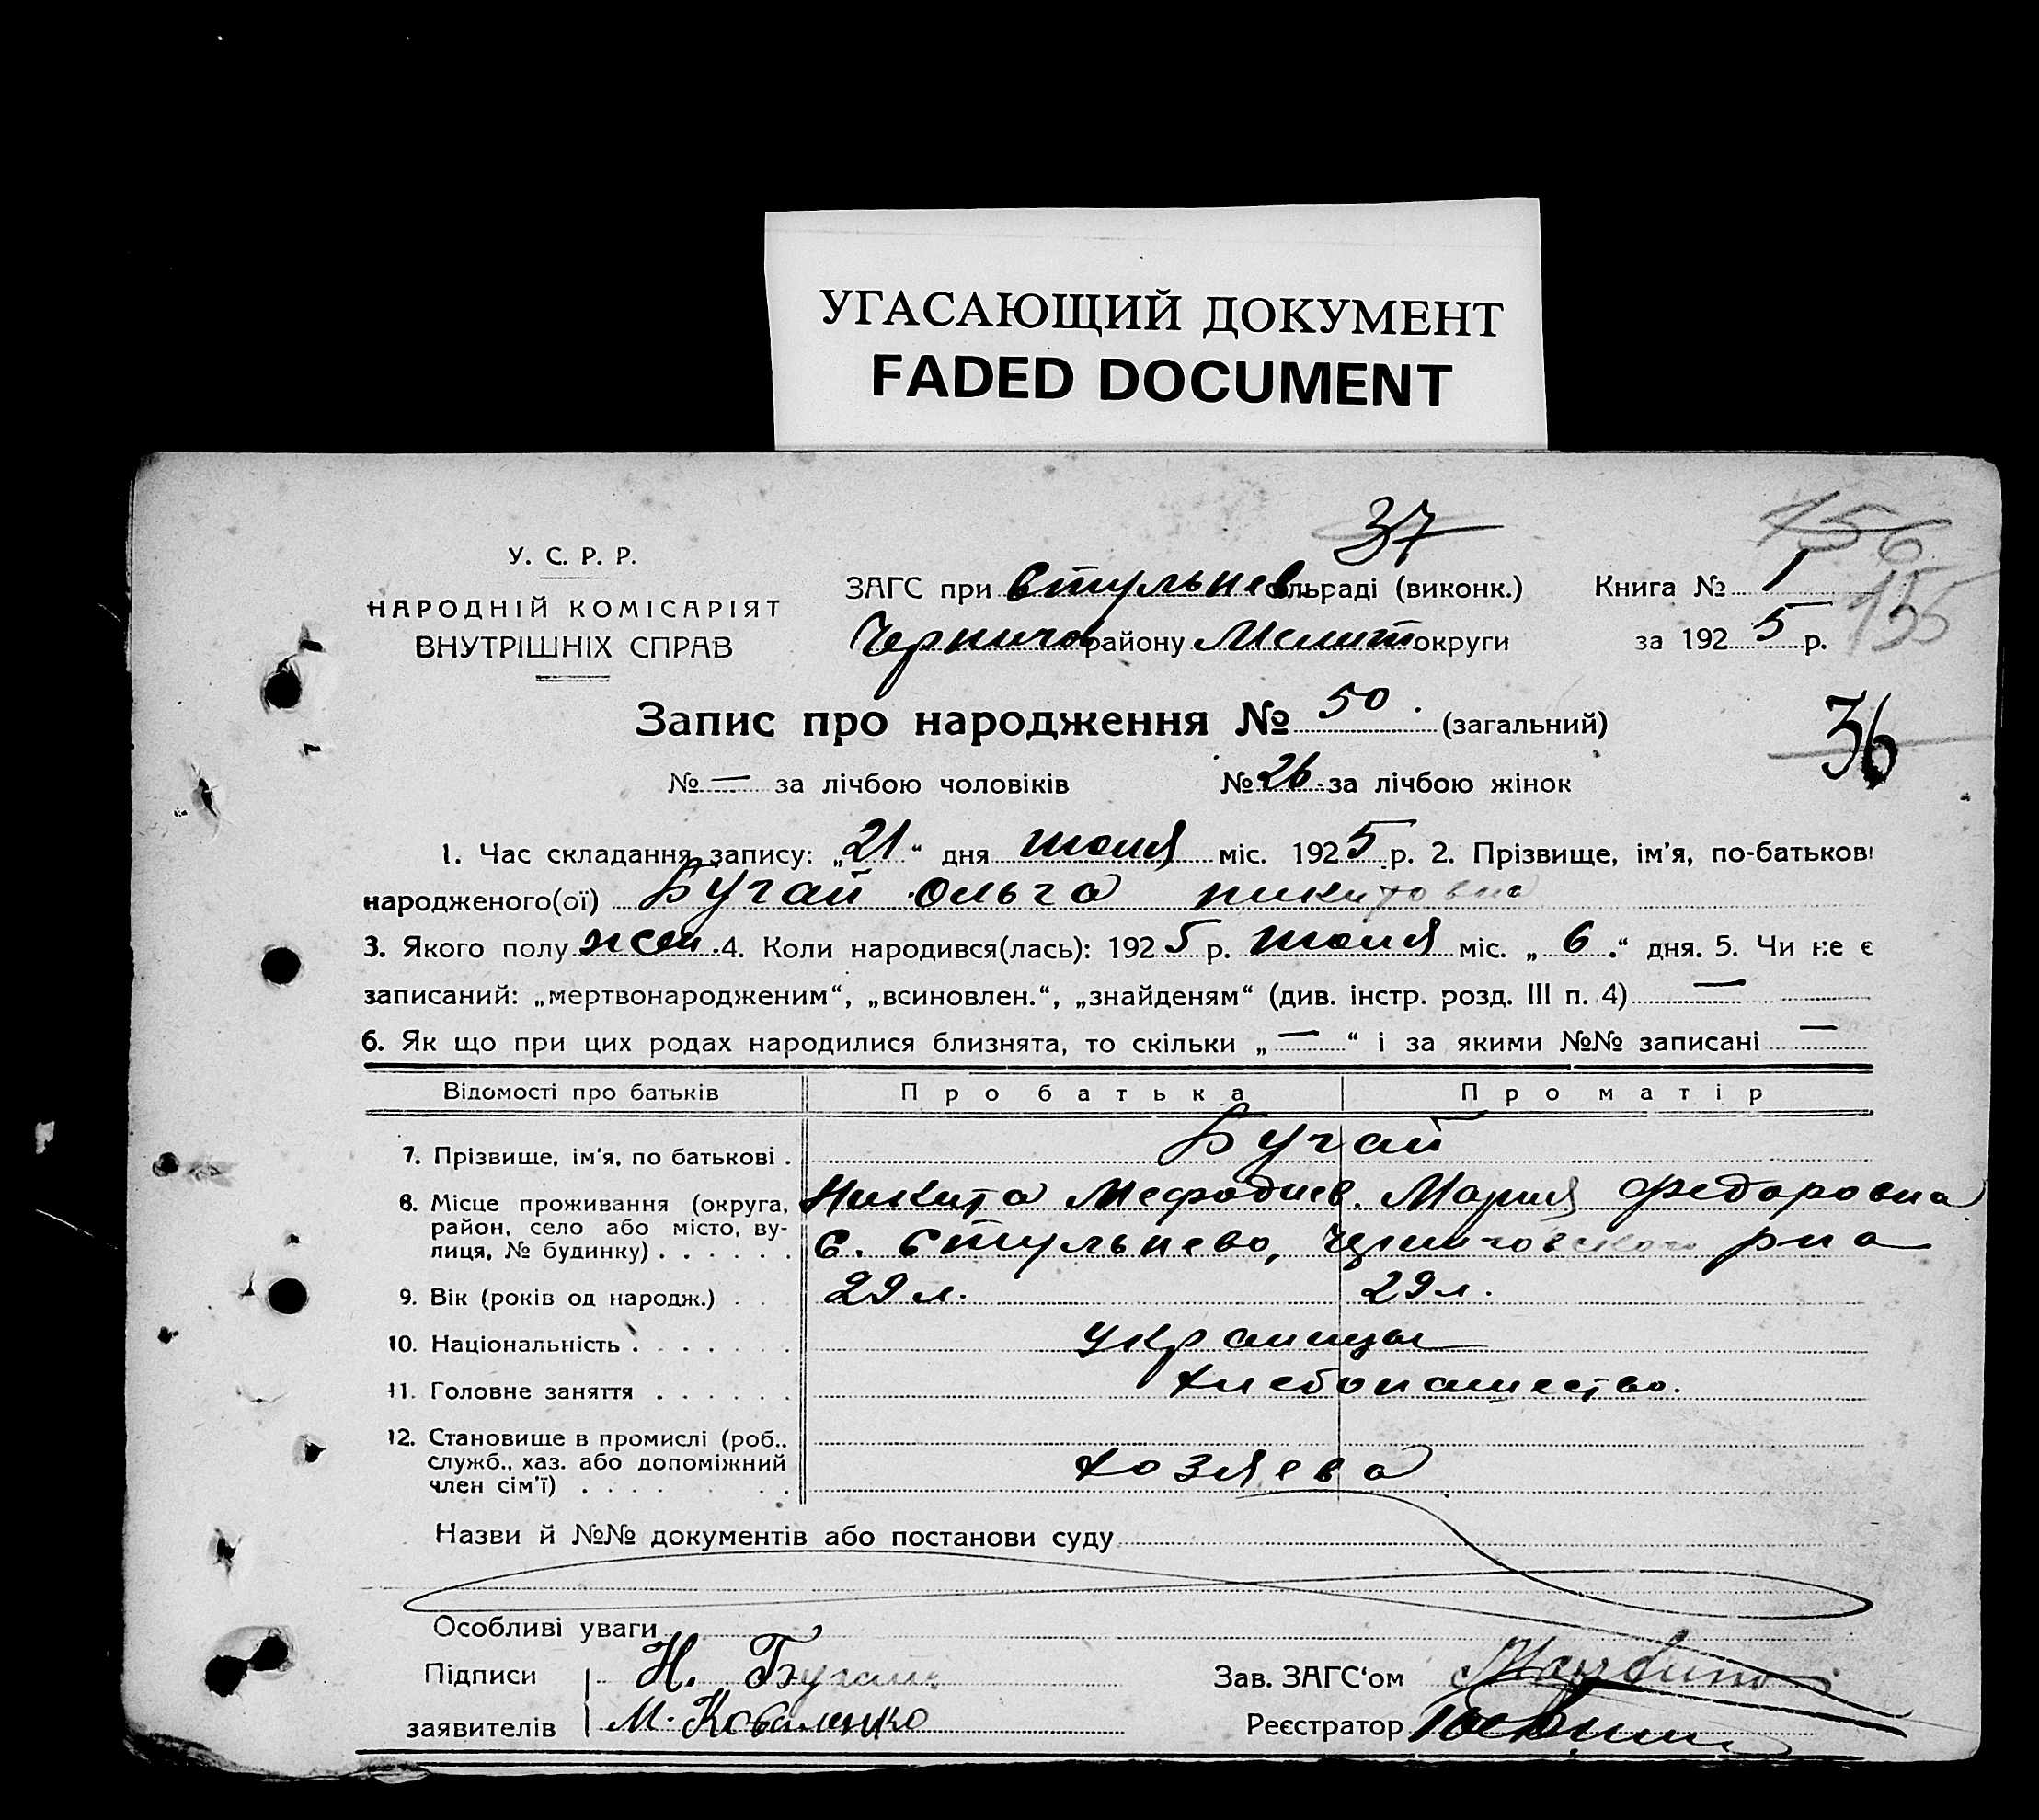 УГАСАЮЩИЙ ДОКУМЕНТ
FADED DOCUMENT
37
456
155
У. С. Р. Р.
НАРОДНІЙ КОМІСАРІЯТ
ВНУТРІШНІХ СПРАВ
ЗАГС при Стульнев сільраді (виконк.) Книга № 1
Чернигов району Мелит округи за 1925 р.
Запис про народження № 50. (загальний)
36
№ — за лічбою чоловіків № 26. за лічбою жінок
1. Час складання запису: „21“ дня июля міс. 1925 р. 2. Прізвище, ім'я, по-батькові
народженого(ої) Бугай Ольга Никитовна
3. Якого полу жен. 4. Коли народився(лась): 1925 р. июля міс. „6.“ дня. 5. Чи не є
записаний: „мертвонародженим“, „всиновлен.“, „знайденям“ (див. інстр. розд. III п. 4) —
6. Як що при цих родах народилися близнята, то скільки „—“ і за якими №№ записані —
Відомості про батьків Про батька Про матір
7. Прізвище, ім'я, по батькові . Бугай
8. Місце проживання (округа, Никита Мефодиев. Мария Федоровна
район, село або місто, ву-
лиця, № будинку) . . . . . . с. Стульнево, Черниговского рна
9. Вік (років од народж.) . . . 29 л. 29 л.
10. Національність . . . . . . . украинцы
11. Головне заняття . . . . . . Хлебопашество.
12. Становище в промислі (роб.,
служб., хаз. або допоміжний
член сім'ї) . . . . . . . хозяева
Назви й №№ документів або постанови суду
Особливі уваги
Підписи Н. Бугай Зав. ЗАГС‘ом
заявителів М. Коваленко Реєстратор